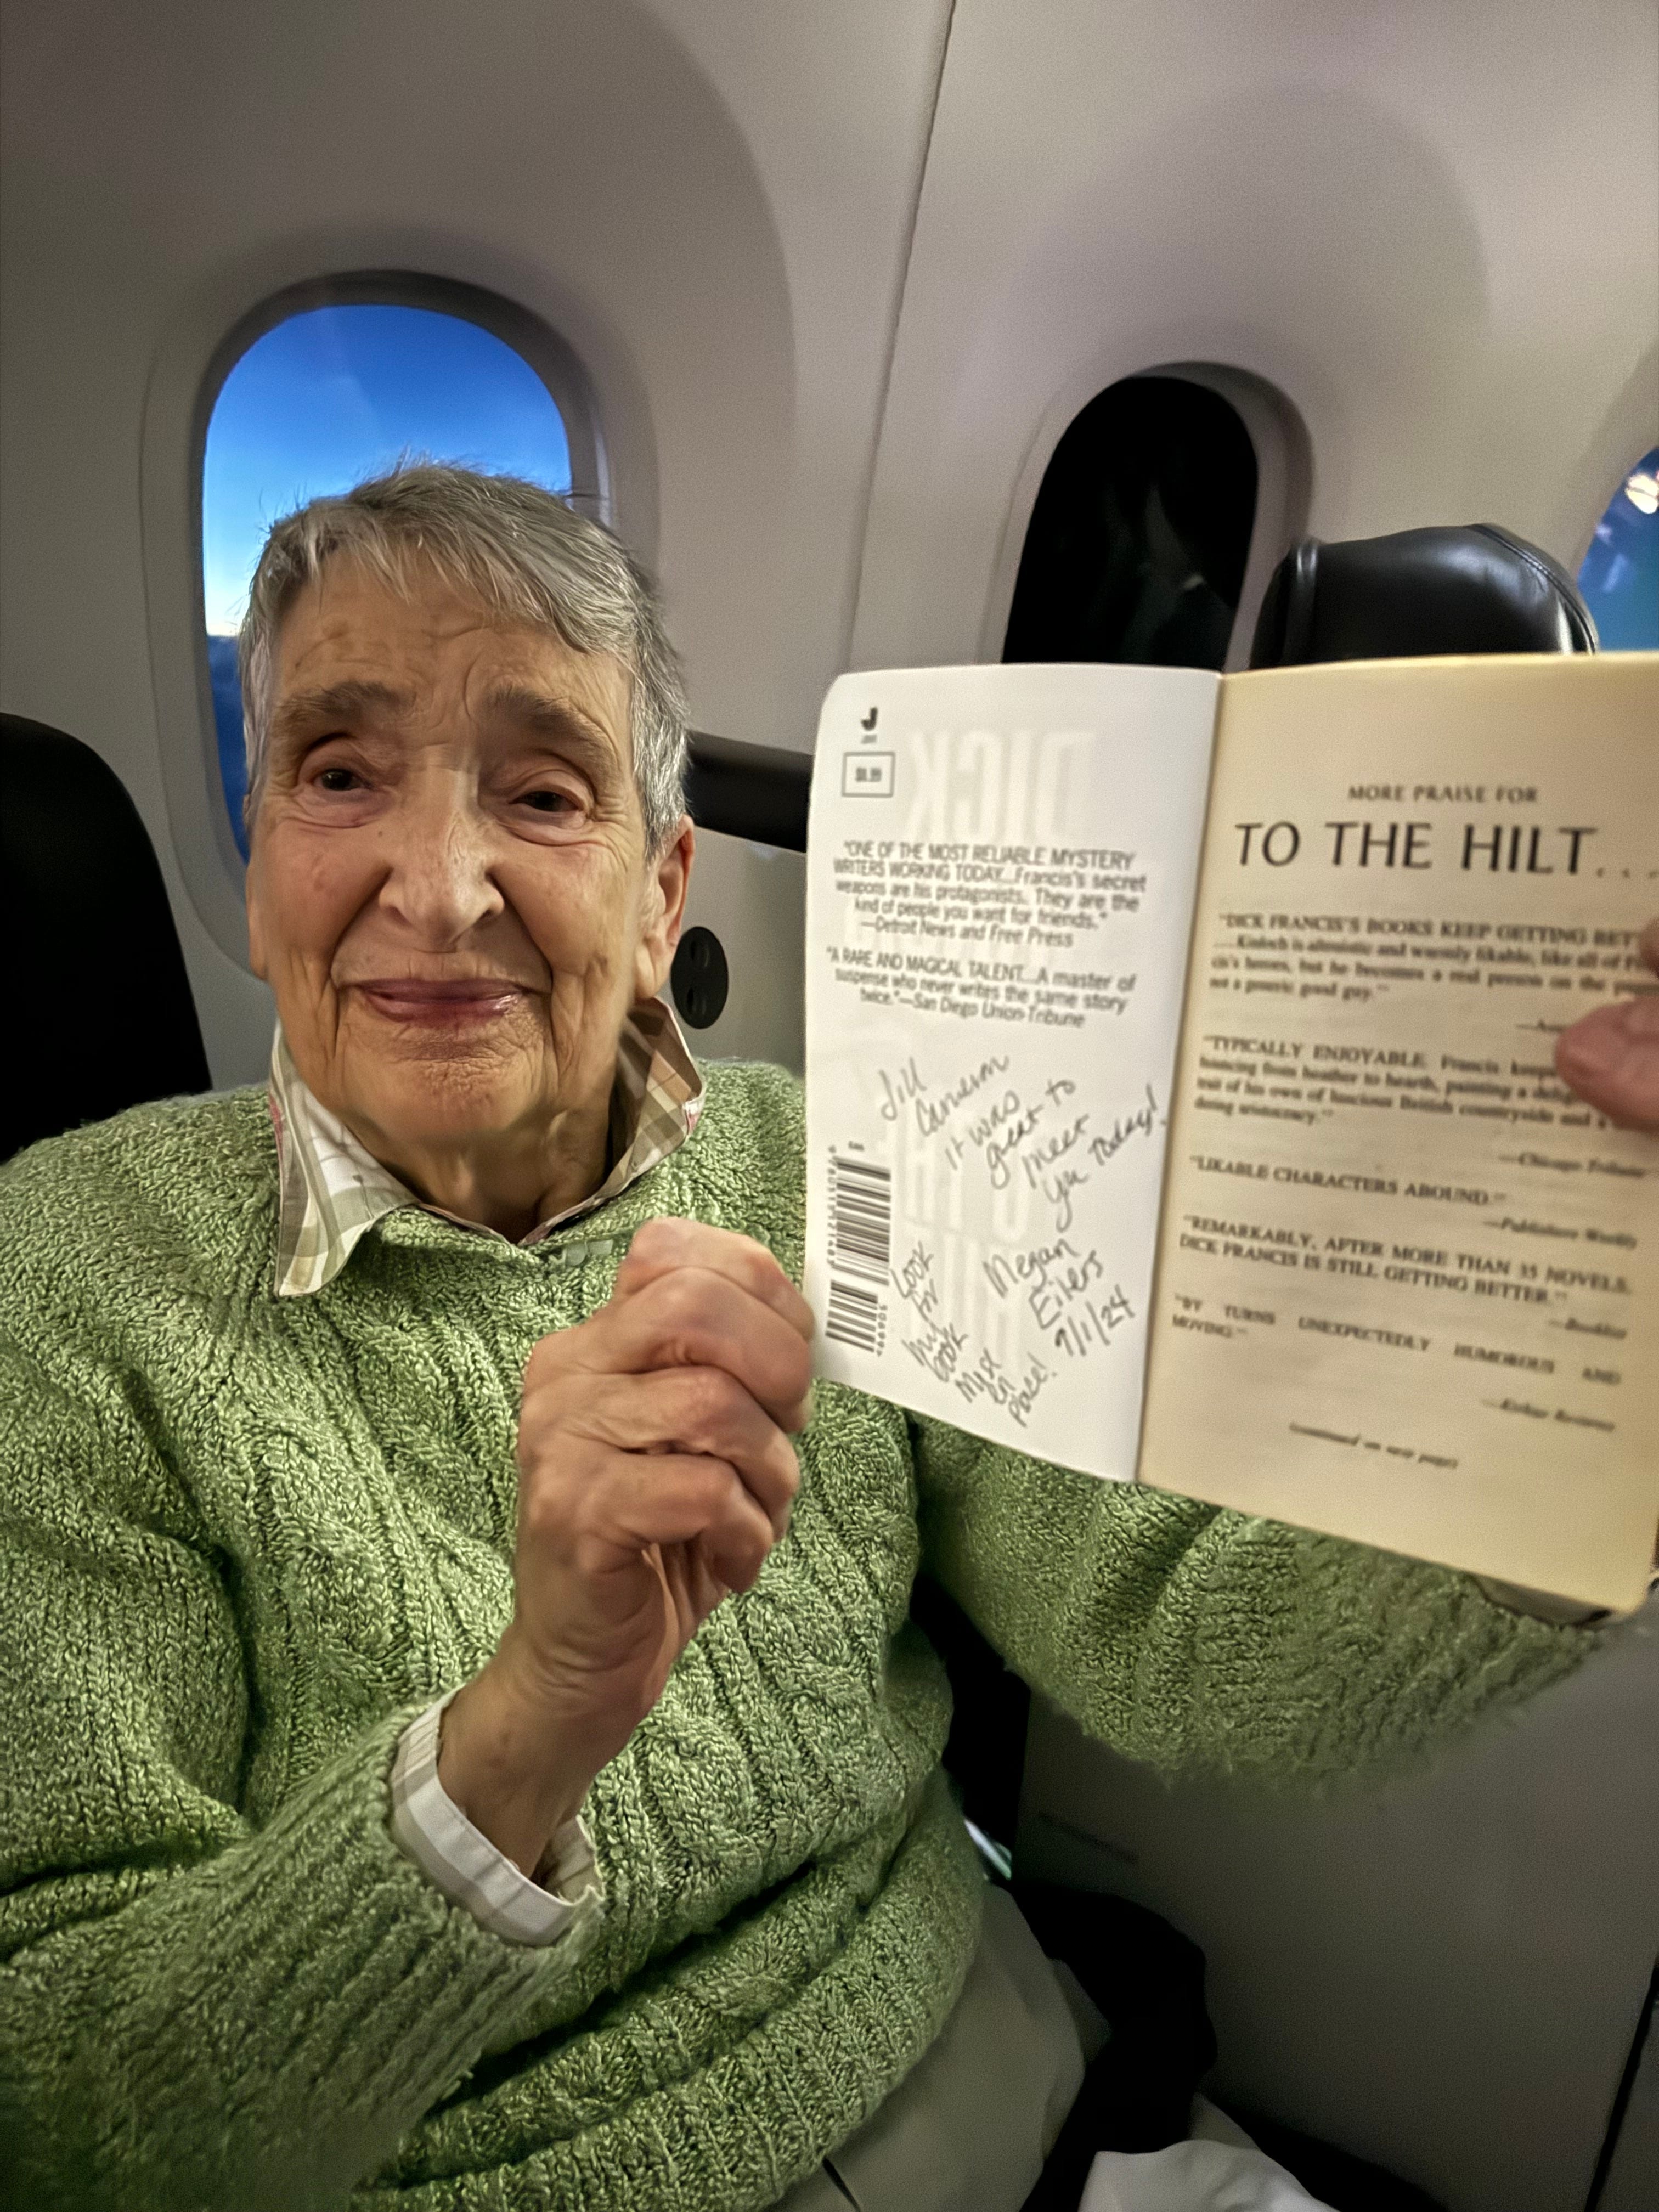 $6.99
"ONE OF THE MOST RELIABLE MYSTERY
WRITERS WORKING TODAY...Francis's secret
weapons are his protagonists. They are the
kind of people you want for friends."
—Detroit News and Free Press
"A RARE AND MAGICAL TALENT...A master of
suspense who never writes the same story
twice."—San Diego Union-Tribune
Jill
Cameron
it was
great to
meet
you today!
Megan
Eilers
9/1/24
Look
for
my
book
en
MORE PRAISE FOR
TO THE HILT...
"DICK FRANCIS'S BOOKS KEEP GETTING
Kinloch is altruistic and warmly likable, like all of
cis's heroes, but he becomes a real person on the
not a generic good guy."
"TYPICALLY ENJOYABLE. Francis
bouncing from heather to hearth, painting a
trait of his own of luscious British countryside and
doing aristocracy."
—Chicago Tribune
"LIKABLE CHARACTERS ABOUND."
—Publishers Weekly
"REMARKABLY, AFTER MORE THAN 35 NOVELS,
DICK FRANCIS IS STILL GETTING BETTER."
—Booklist
"BY TURNS UNEXPECTEDLY HUMOROUS AND
MOVING."
—Kirkus Reviews
(continued on next page)